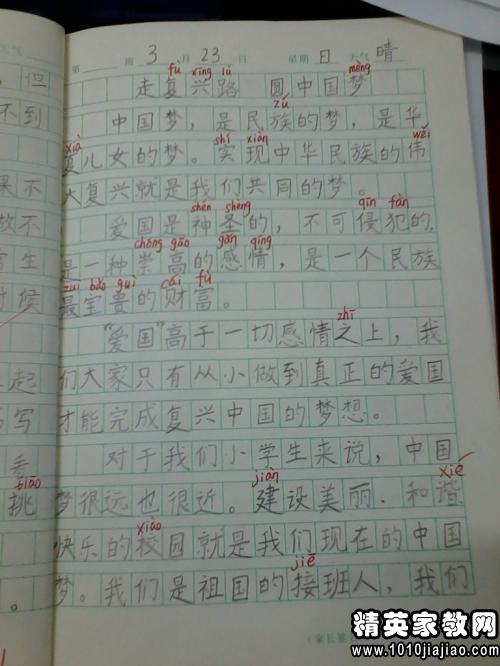 第 周 3 月 23 日 星期 日 天气 晴
fù xīng lù mèng
走复兴路 圆中国梦
zú
中国梦，是民族的梦，是华
xià shí xiàn wěi
夏儿女的梦。实现中华民族的伟
大复兴就是我们共同的梦。
shén shèng qīn fàn
爱国是神圣的，不可侵犯的，
chóng gāo gǎn qíng
是一种崇高的感情，是一个民族
zuì bǎo guì cái fù
最宝贵的财富。
zhī
“爱国”高于一切感情之上，我
们大家只有从小做到真正的爱国
才能完成复兴中国的梦想。
对于我们小学生来说，中国
jiàn xié
梦很远也很近。建设美丽、和谐
xiào
快乐的校园就是我们现在的中国
jiē
梦。我们是祖国的接班人，我们
天气
，但
不到
果不
放不
生
时候
起
写
看
tiāo
挑
。
（家长签
精英家教网
www.1010jiajiao.com